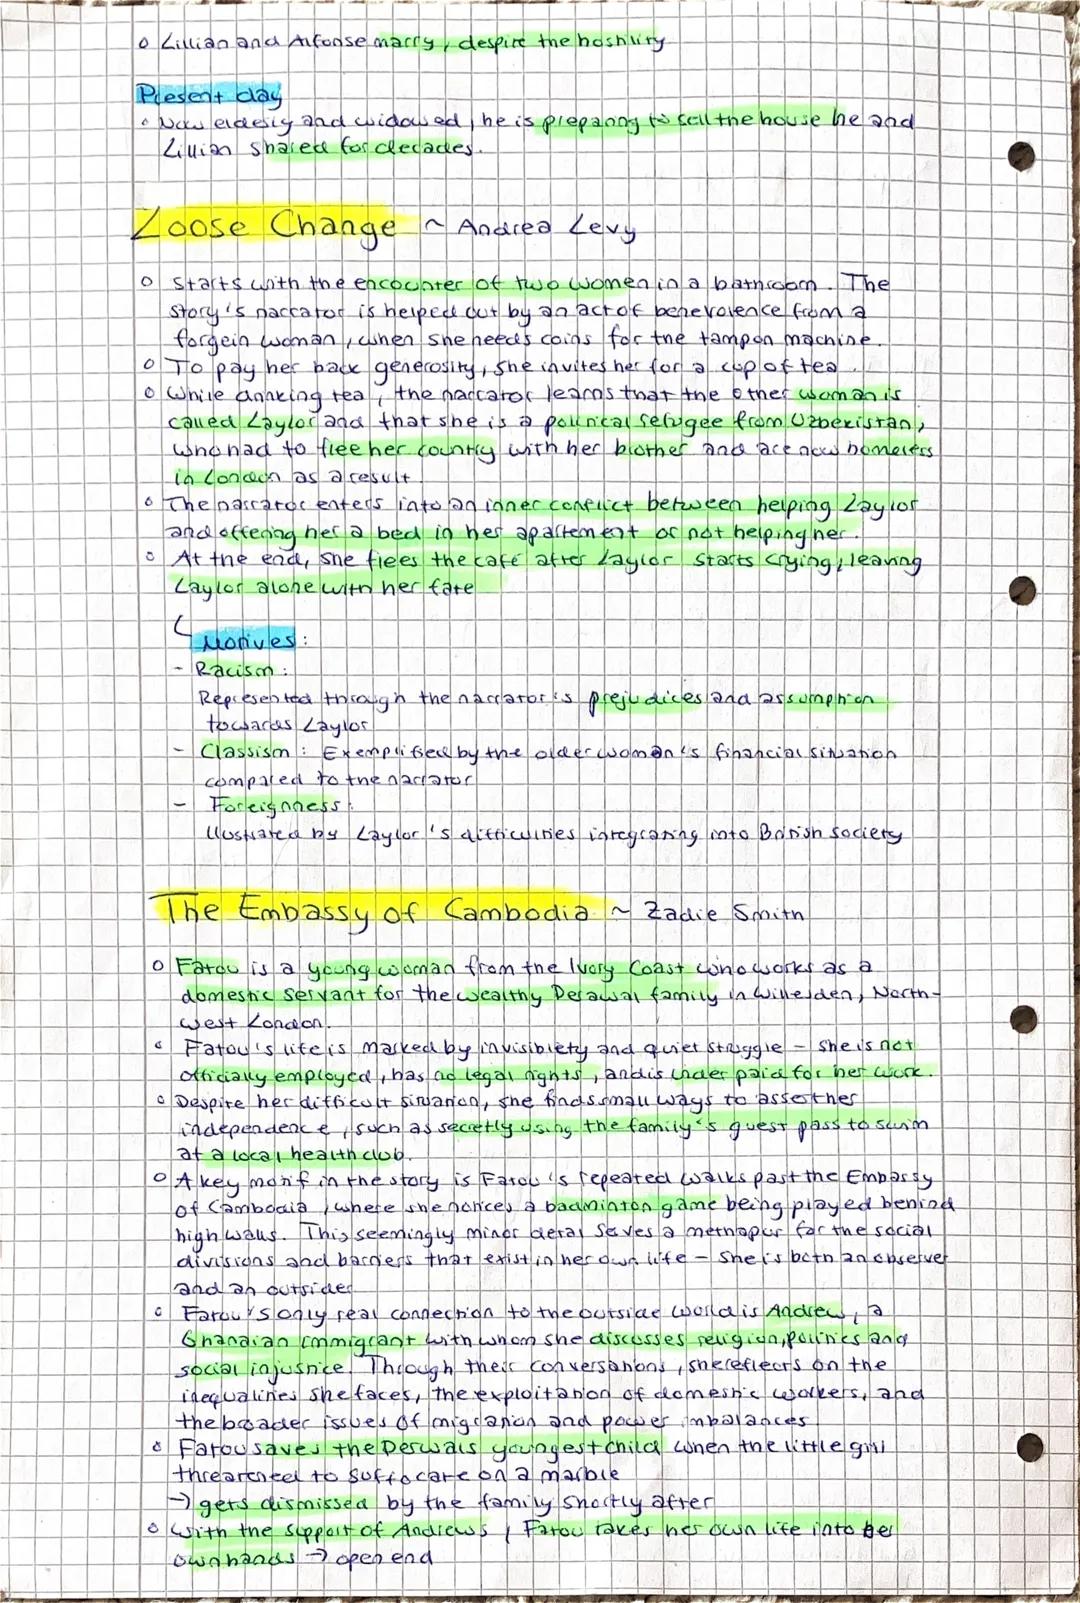 o Lillian and Alfonse marry, despite the hostility
Present day
• Now elderly and widowed, he is preparing to sell the house he and
Lillian shared for decades.
Loose Change ~ Andrea Levy
o Starts with the encounter of two women in a bathroom. The
story's narrator is helped out by an act of benevolence from a
forgein woman, when she needs coins for the tampon machine.
o To pay her back generosity, she invites her for a cup of tea.
o While drinking tea, the narrator learns that the other woman is
called Laylor and that she is a political refugee from Uzbekistan,
who had to flee her country with her brother and are now homeless
in London as a result.
o The narrator enters into an inner conflict between helping Laylor
and offering her a bed in her apartement or not helping her.
o At the end, she flees the café after Laylor starts crying, leaving
Laylor alone with her fate
Motives:
- Racism:
Represented through the narrator's prejudices and assumption
towards Laylor
- Classism: Exemplified by the older woman's financial situation
compared to the narrator
- Foreignness:
Illustrated by Laylor's difficulties integrating into British society
The Embassy of Cambodia ~ Zadie Smith
o Fatou is a young woman from the Ivory Coast who works as a
domestic servant for the wealthy Derawal family in Willesden, North-
west London.
o Fatou's life is marked by invisibiety and quiet struggle - she is not
officially employed, has no legal rights, and is under paid for her work.
o Despite her difficult situation, she finds small ways to assert her
independence, such as secretly using the family's guest pass to swim
at a local health club.
o A key motif in the story is Fatou's repeated walks past the Embassy
of Cambodia, where she notices a badminton game being played behind
high walls. This seemingly minor detail serves a methaper for the social
divisions and barriers that exist in her own life - she is both an observer
and an outsider
o Fatou's only real connection to the outside world is Andrew, a
Ghanaian immigrant with whom she discusses religion, politics and
social injustice. Through their conversations, she reflects on the
inequalities she faces, the exploitation of domestic workers, and
the broader issues of migration and power imbalances
o Fatou saves the Derwals youngest child when the little girl
threartened to suffocate on a marble
→ gets dismissed by the family shortly after
o With the support of Andrew's, Fatou takes her own life into her
own hands → open end